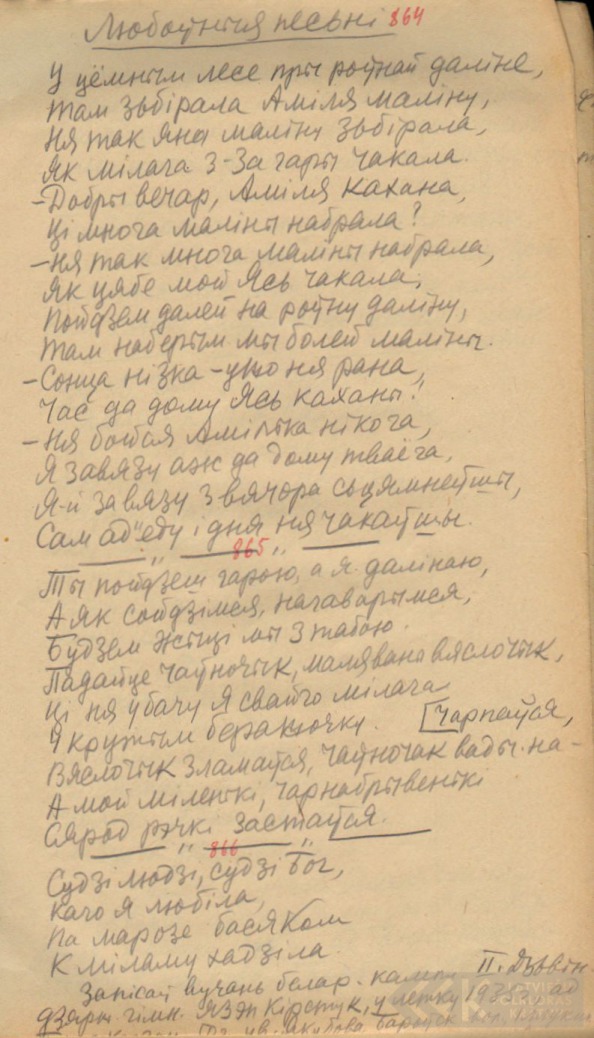 Любоўныя песьні 864
У цёмным лесе пры роўнай даліне,
Там зьбірала Аміля маліну,
Ня так яна маліну зьбірала,
Як мілага з-за гары чакала.
-Добры вечар, Аміля кахана,
Ці многа маліны набрала?
-Ня так многа маліны набрала,
Як цябе мой Ясь чакала,
Пойдзем далей на роўну даліну,
Там наберым мы болей маліны.
-Сонца нізка - ужо ня рана,
Час да дому Ясь каханы!
-Ня бойся Амілька нікога,
Я завязу аж да дому тваёга,
Я-й завязу з вячора сьцямнеўшы,
Сам ад'еду і дня ня чакаўшы.
865
Ты пойдзеш гарою, а я далінаю,
А як сойдзімся, нагаварымся,
Будзем жыці мы з табою.
Падайце чаўночык, малявана вяслочык,
Ці ня убачу я свайго мілага
У крутым беражочку. [чарпаўся,
Вяслочык зламаўся, чаўночак вады на-
А мой міленькі, чарнабрывенькі
Сярод рэчкі застаўся.
866
Судзі людзі, судзі Бог,
Каго я любіла,
Па марозе басяком
К міламу хадзіла.
Запісаў вучань белар. кампл. II. Дзьвін.
дзярж. гімн. Язэп Кірстук, у летку 192
LATVIEŠU
FOLKLORAS
KRĀTUVE